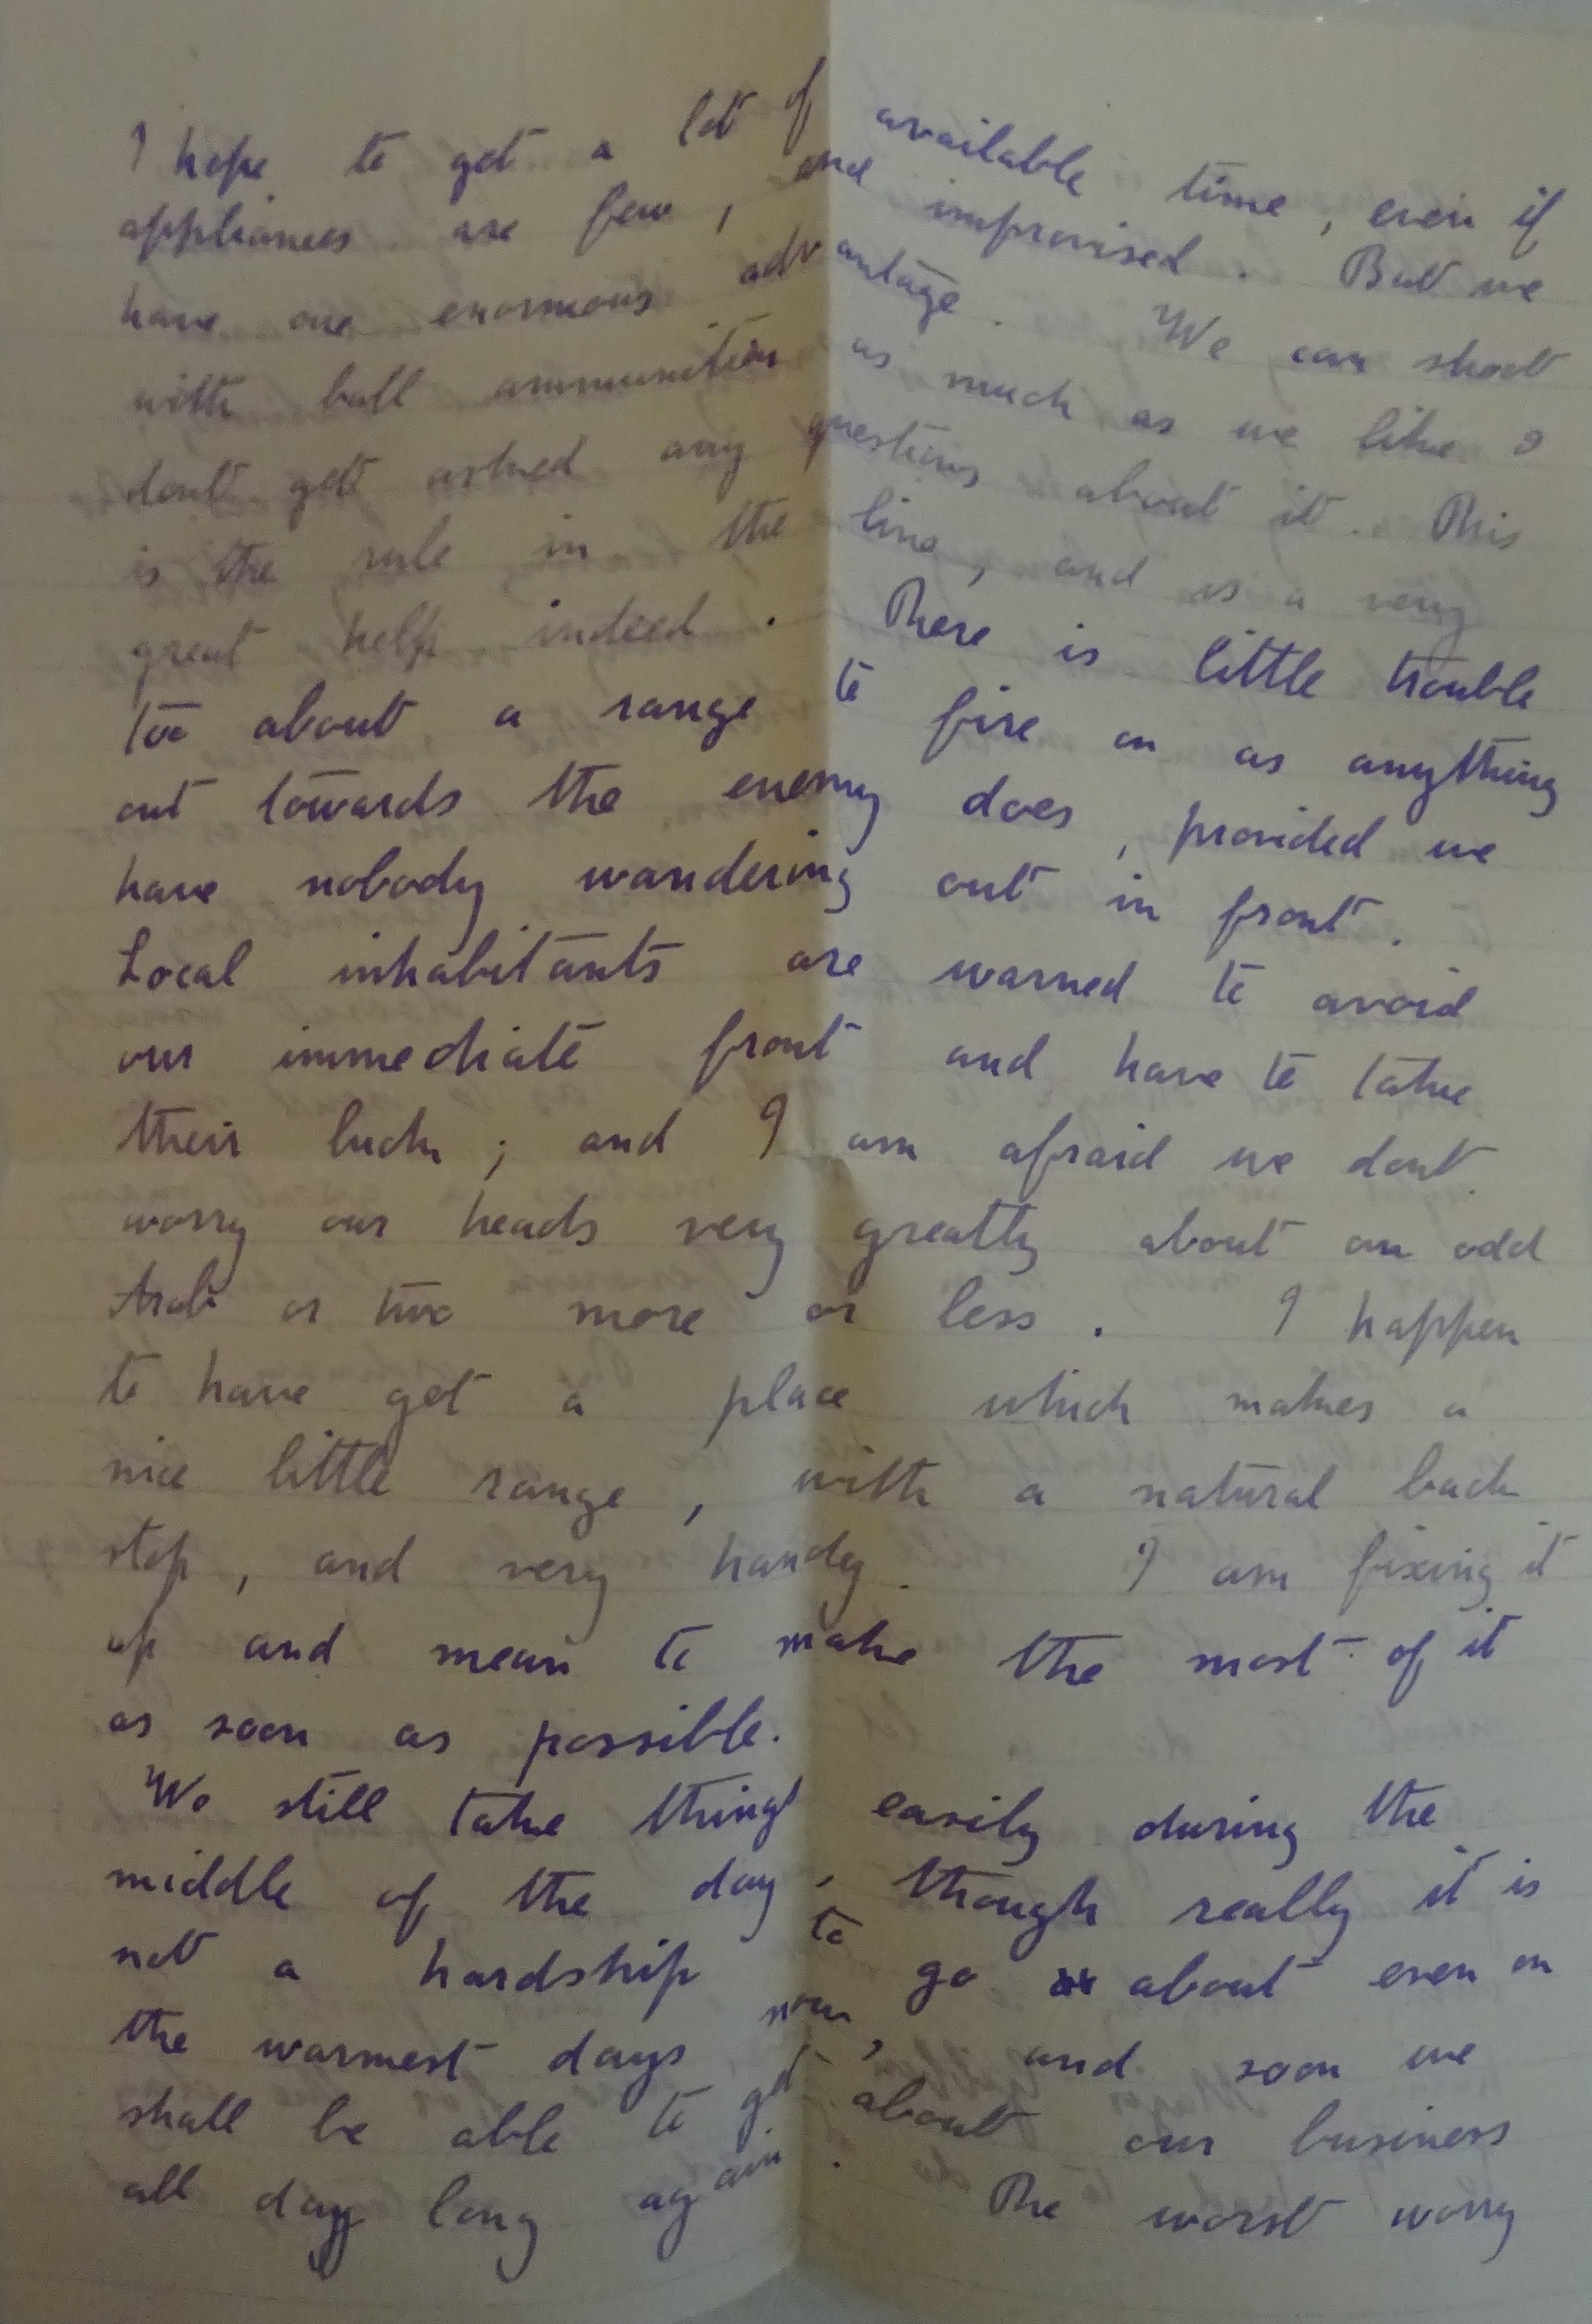 I hope to get a lot of available time, even if
appliances are few, and improvised. But we
have one enormous advantage. We can shoot
with ball ammunition as much as we like &
dont get asked any questions about it. This
is the rule in the line, and is a very
great help indeed. There is little trouble
too about a range to fire on as anything
out towards the enemy does, provided we
have nobody wandering out in front.
Local inhabitants are warned to avoid
our immediate front and have to take
their luck; and I am afraid we dont
worry our heads very greatly about an odd
Arab or two more or less. I happen
to have got a place which makes a
nice little range, with a natural back
stop, and very handy. I am fixing it
up and mean to make the most of it
as soon as possible.
We still take things easily during the
middle of the day, though really it is
not a hardship to go about even on
the warmest days now, and soon we
shall be able to get about our business
all day long again. The worst worry